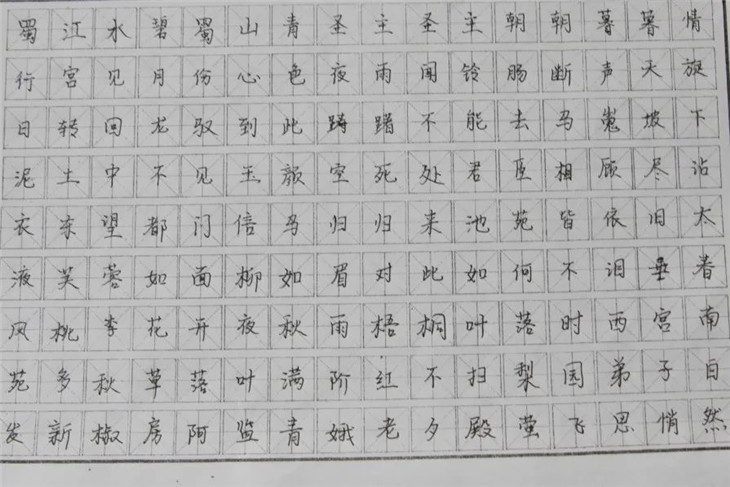 蜀江水碧蜀山青圣主圣主朝朝暮暮情
行宫见月份心色夜雨闻铃肠断声天旋
日转回龙驭到此踌躇不能去马嵬坡下
泥土中不见玉颜空死处君臣相顾尽沾
衣东望都门信马归归来池苑皆依旧太
液芙蓉如面柳如眉对此如何不泪垂春
风桃李花开夜秋雨梧桐叶落时西宫南
苑多秋草落叶满阶红不扫梨园弟子白
发新椒房阿监青娥老夕殿萤飞思悄然